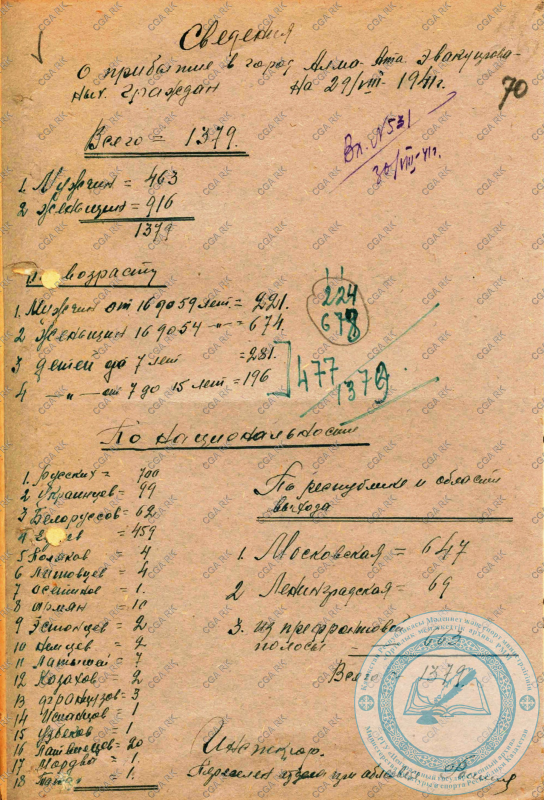 Сведения
О прибытие в город Алма-Ата эвакуирова-
ных граждан на 29/VIII-1941г.
70
Вх. N 531
30/VIII-41г.
Всего = 1379.
1. Мужчин = 463
2 Женьщин = 916
1379
возрасту
1. Мужчин от 16 до 59 лет = 221.
2 Женьщин 16 до 54 -"- = 674.
3 детей до 7 лет = 281.
4 -"- от 7 до 15 лет = 196
224
678
477
1379
По национальности
1. Русских = 700
2 Украинцев = 99
3 Белоруссов = 62
4 = 459
5 Поляков = 4
6 Литовцев = 4
7 осетинов = 1.
8 Армян = 10
9 Эстонцев = 2
10 Немцев = 2
11 Латышей = 7
12 Казахов = 2
13 французов = 3
14 Испанцов = 1
15 Узбеков = 1
16 = 20
17 Мордва = 1
18 = 1.
По республике и области
выхода
1. Московская = 647
2 Ленинградская = 69
3. из префронтовой
полосы 663
Всего = 1379.
Инспектор